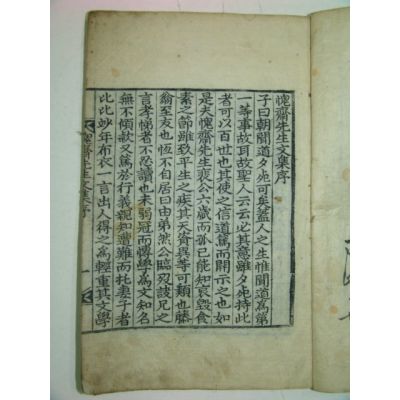 愧齋先生文集序
子曰朝聞道夕死可矣蓋人之生惟聞道爲第
一等事故耳故聖人云云必其意雖夕死持此
者可以百世也其使之信道篤而開示之也如
是夫愧齋先生裵公六歲而孤已能知哀毁食
素之節雖致平生之疾其天資異等可類也滕
翁至友也恆不自居曰由弟然公臨歿談兄之
言孝悌者不忍讀也未弱冠而博學爲文知名
無不傾欵又篤於行義親知遭難而托妻子者
比比妙年布衣一言出人得之爲輕重其文學
愧齋先生文集序
一